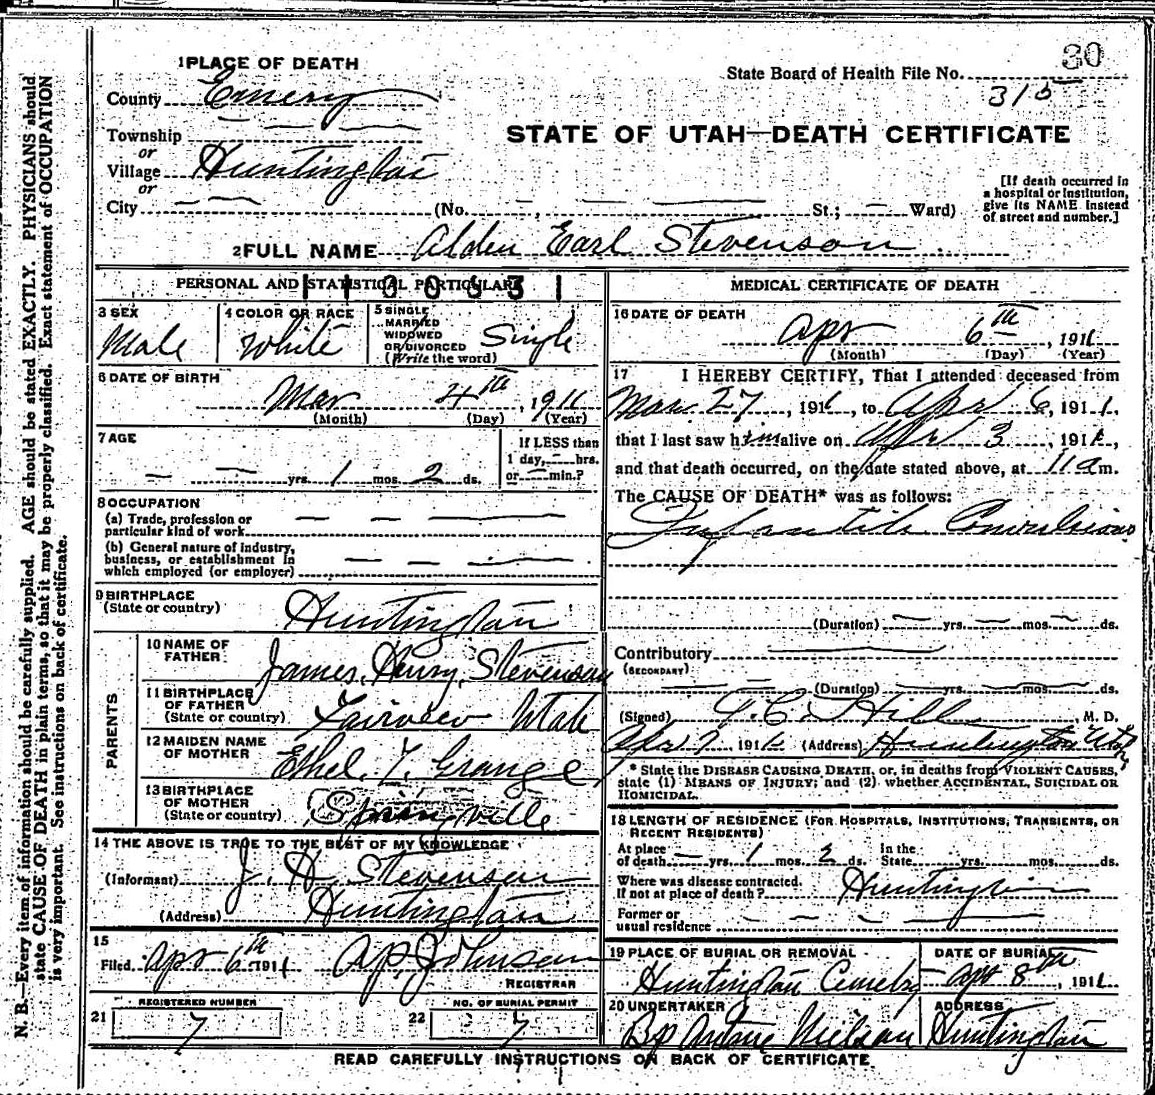 30
1 PLACE OF DEATH
State Board of Health File No. 315
County Emery
STATE OF UTAH—DEATH CERTIFICATE
Township
or
Village Huntington
or
City (No. St.; Ward)
[If death occurred in
a hospital or institution,
give its NAME instead
of street and number.]
2 FULL NAME Alden Earl Stevenson
PERSONAL AND STATISTICAL PARTICULARS
3 SEX
Male
4 COLOR OR RACE
White
5 SINGLE
MARRIED
WIDOWED
OR DIVORCED
(Write the word)
Single
6 DATE OF BIRTH
Mar 4th, 1911
(Month) (Day) (Year)
7 AGE
yrs. 1 mos. 2 ds.
If LESS than
1 day, hrs.
or min.?
8 OCCUPATION
(a) Trade, profession or
particular kind of work
(b) General nature of industry,
business, or establishment in
which employed (or employer)
9 BIRTHPLACE
(State or country)
Huntington
PARENTS
10 NAME OF
FATHER
James Henry Stevenson
11 BIRTHPLACE
OF FATHER
(State or country)
Fairview Utah
12 MAIDEN NAME
OF MOTHER
Ethel Z. Grange
13 BIRTHPLACE
OF MOTHER
(State or country)
Springville
14 THE ABOVE IS TRUE TO THE BEST OF MY KNOWLEDGE
(Informant) J. H. Stevenson
(Address) Huntington
15
Filed Apr 6th 1911 A P Johnson
REGISTRAR
REGISTERED NUMBER
21 7
NO. OF BURIAL PERMIT
22 7
MEDICAL CERTIFICATE OF DEATH
16 DATE OF DEATH
Apr 6th, 1911
(Month) (Day) (Year)
17 I HEREBY CERTIFY, That I attended deceased from
Mar 27, 1911, to Apr 6, 1911,
that I last saw him alive on Apr 3, 1911,
and that death occurred, on the date stated above, at 11 a m.
The CAUSE OF DEATH* was as follows:
Infantile Convulsions
(Duration) yrs. mos. ds.
Contributory
(SECONDARY)
(Duration) yrs. mos. ds.
(Signed) Hill, M. D.
Apr 7 1911 (Address) Huntington Utah
* State the DISEASE CAUSING DEATH, or, in deaths from VIOLENT CAUSES,
state (1) MEANS OF INJURY; and (2) whether ACCIDENTAL, SUICIDAL OR
HOMICIDAL.
18 LENGTH OF RESIDENCE (FOR HOSPITALS, INSTITUTIONS, TRANSIENTS, OR
RECENT RESIDENTS)
At place
of death yrs. 1 mos. 2 ds.
In the
State yrs. mos. ds.
Where was disease contracted.
If not at place of death? Huntington
Former or
usual residence
19 PLACE OF BURIAL OR REMOVAL
Huntington Cemetery
DATE OF BURIAL
Apr 8th, 1911
20 UNDERTAKER
Bp Nielsen
ADDRESS
Huntington
READ CAREFULLY INSTRUCTIONS ON BACK OF CERTIFICATE
N. B.—Every item of information should be carefully supplied. AGE should be stated EXACTLY. PHYSICIANS should
state CAUSE OF DEATH in plain terms, so that it may be properly classified. Exact statement of OCCUPATION
is very important. See instructions on back of certificate.